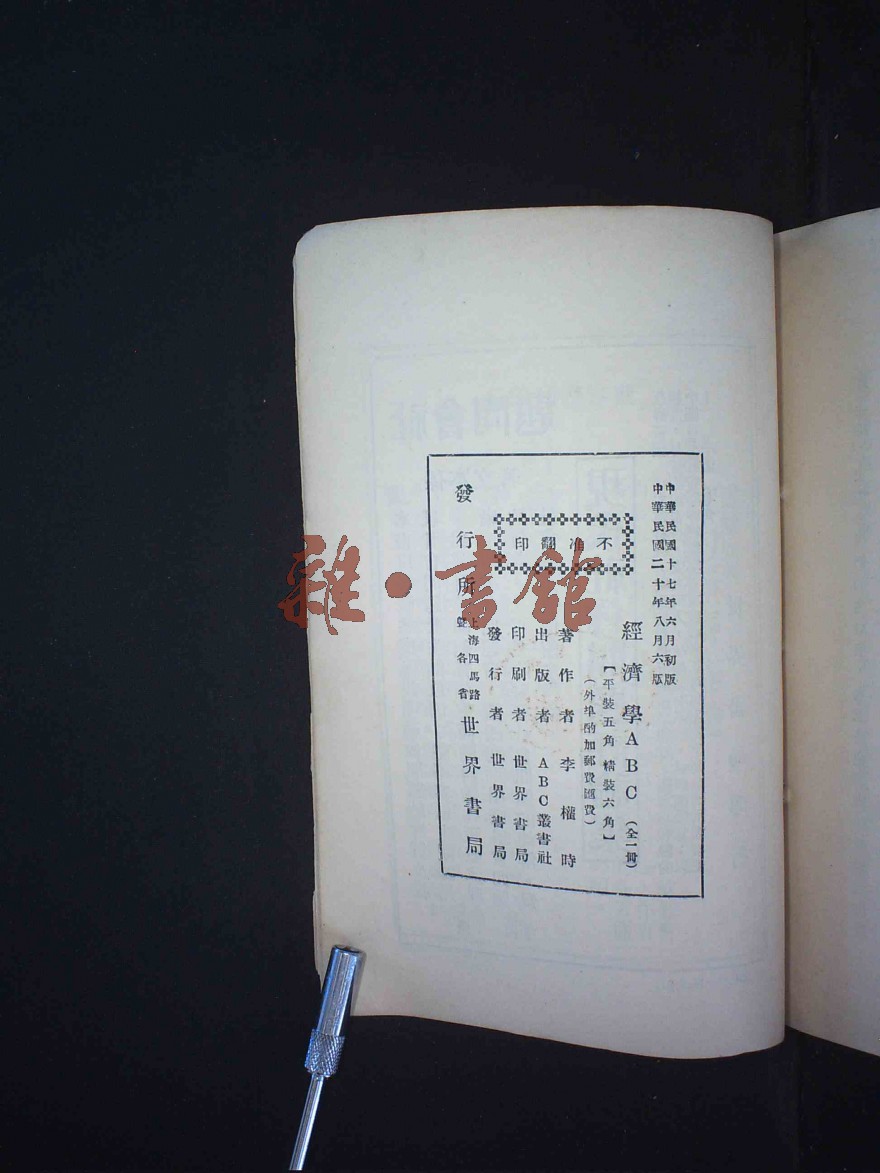 中華民國十七年六月初版
中華民國二十年八月六版
經濟學ABC（全一冊）
【平裝五角 精裝六角】
（外埠酌加郵費匯費）
不准翻印
著作者 李權時
出版者 ABC叢書社
印刷者 世界書局
發行者 世界書局
發行所 上海四馬路 暨各省 世界書局
雜·書館